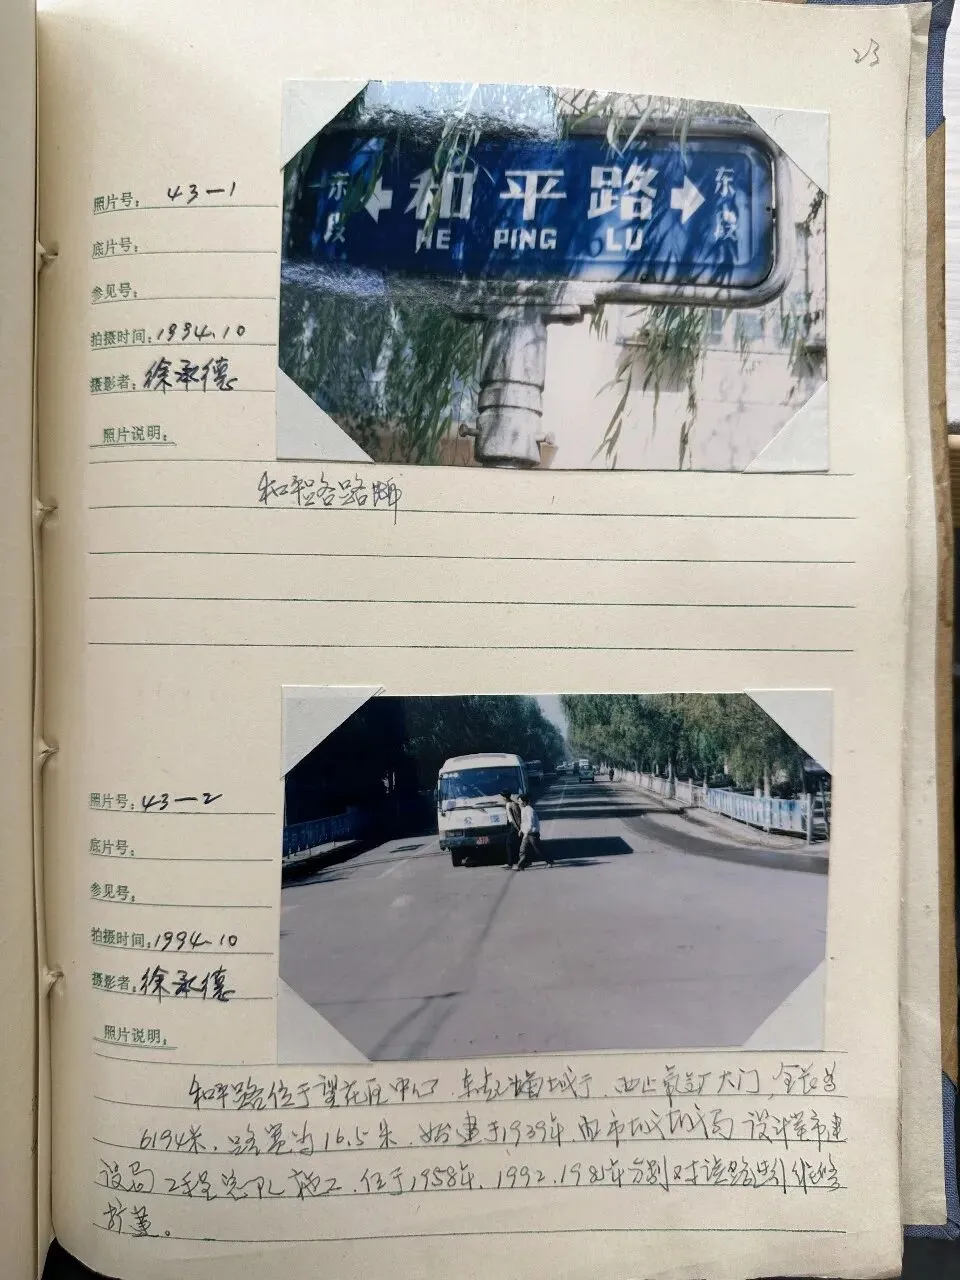 23
东段 ← 和平路 → 东段
HE PING LU
照片号: 43-1
底片号:
参见号:
拍摄时间: 1994.10
摄影者: 徐承德
照片说明:
和平路路牌
照片号: 43-2
底片号:
参见号:
拍摄时间: 1994.10
摄影者: 徐承德
照片说明:
和平路位于望花区中心,东起 西止 大门,全长为
6194米,路宽为16.5米,始建于1939年,由市 局设计 市建
设局工程 施工,位于1958年、1992、1981年分别对该路进行维修
扩 。